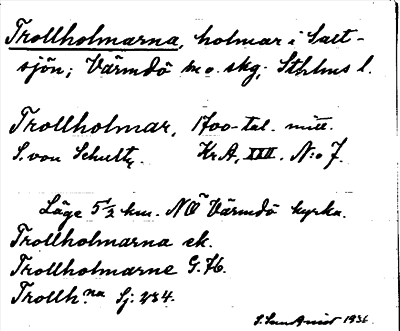 Trollholmarna, holmar i Salt-
sjön; Värmdö sn o. skg; Sthlms l.
Trollholmar, 1700-tal. mitt.
S. von Schultz. Kr.A, XXII. N:o 7.
Läge 5 1/2 km. NO Värmdö kyrka.
Trollholmarna ek.
Trollholmarne G.
Trollh.na Sj: 234.
1936